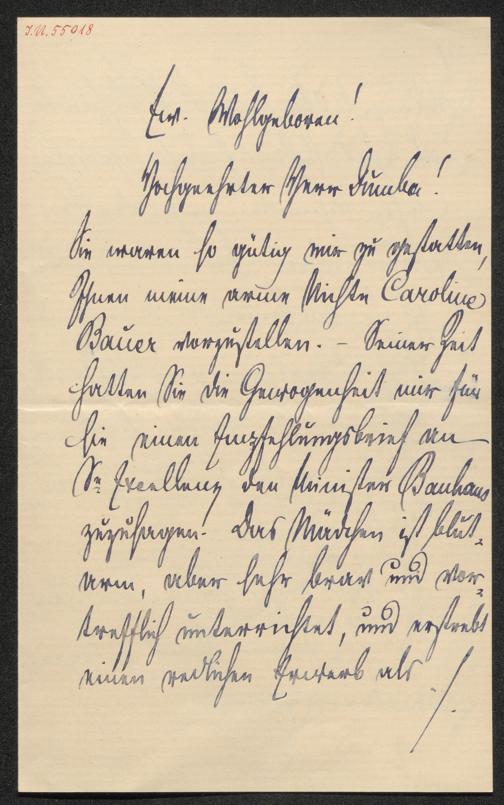 I.N. 55018
Ew. Wohlgeboren!
Hochgeehrter Herr Dumba!
Sie waren so gütig mir zu gestatten,
Ihnen meine arme Nichte Caroline
Bauer vorzustellen. – Seiner Zeit
hatten Sie die Gewogenheit mir für
sie einen Empfehlungsbrief an
Sr Excellenz den Minister Banhans
zuzusagen. Das Mädchen ist blut-
arm, aber sehr brav und vor-
trefflich unterrichtet, und erstrebt
einen redlichen Erwerb als
./.